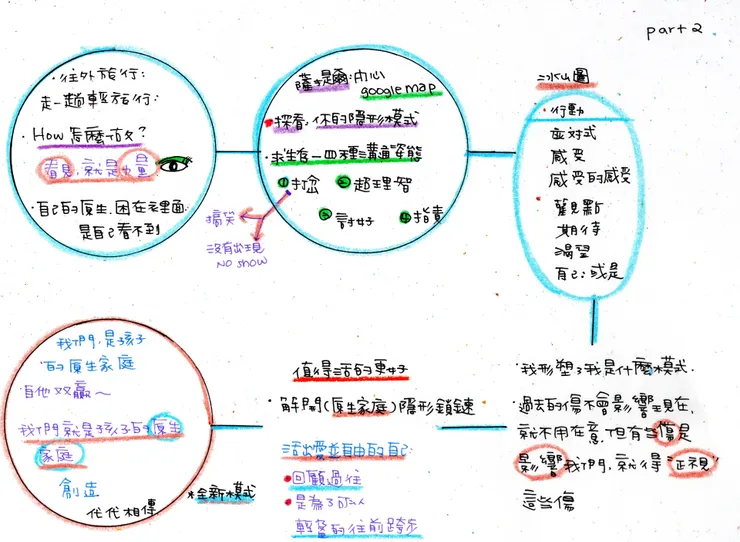 part 2
·往外旅行:
走一趟輕旅行:
·How 怎麼做?
看見,就是力量.
·自己的原生,困在裡面
是自己看不到
薩提爾:內心
google map
探看,你的隱形模式
·求生存—四種溝通姿態
①打岔 ②超理智
③討好 ④指責
搞笑
沒有出現
NO show
冰山圖
·行動
應對方式
感受
感受的感受
觀點
期待
渴望
自己:或是
·我形塑了我是什麼模式.
·過去的傷不會影響現在,
就不用在意,但有些傷是
影響我們,就得"正視"
這些傷
值得活的更好
·解開(原生家庭)隱形鎖鏈
活出愛並自由的自己
·回顧過往
·是為了可以
輕盈的往前跨步
我們,是孩子
的原生家庭
自他双贏~
我們就是孩子的原生
家庭
創造
*全新模式
代代相傳